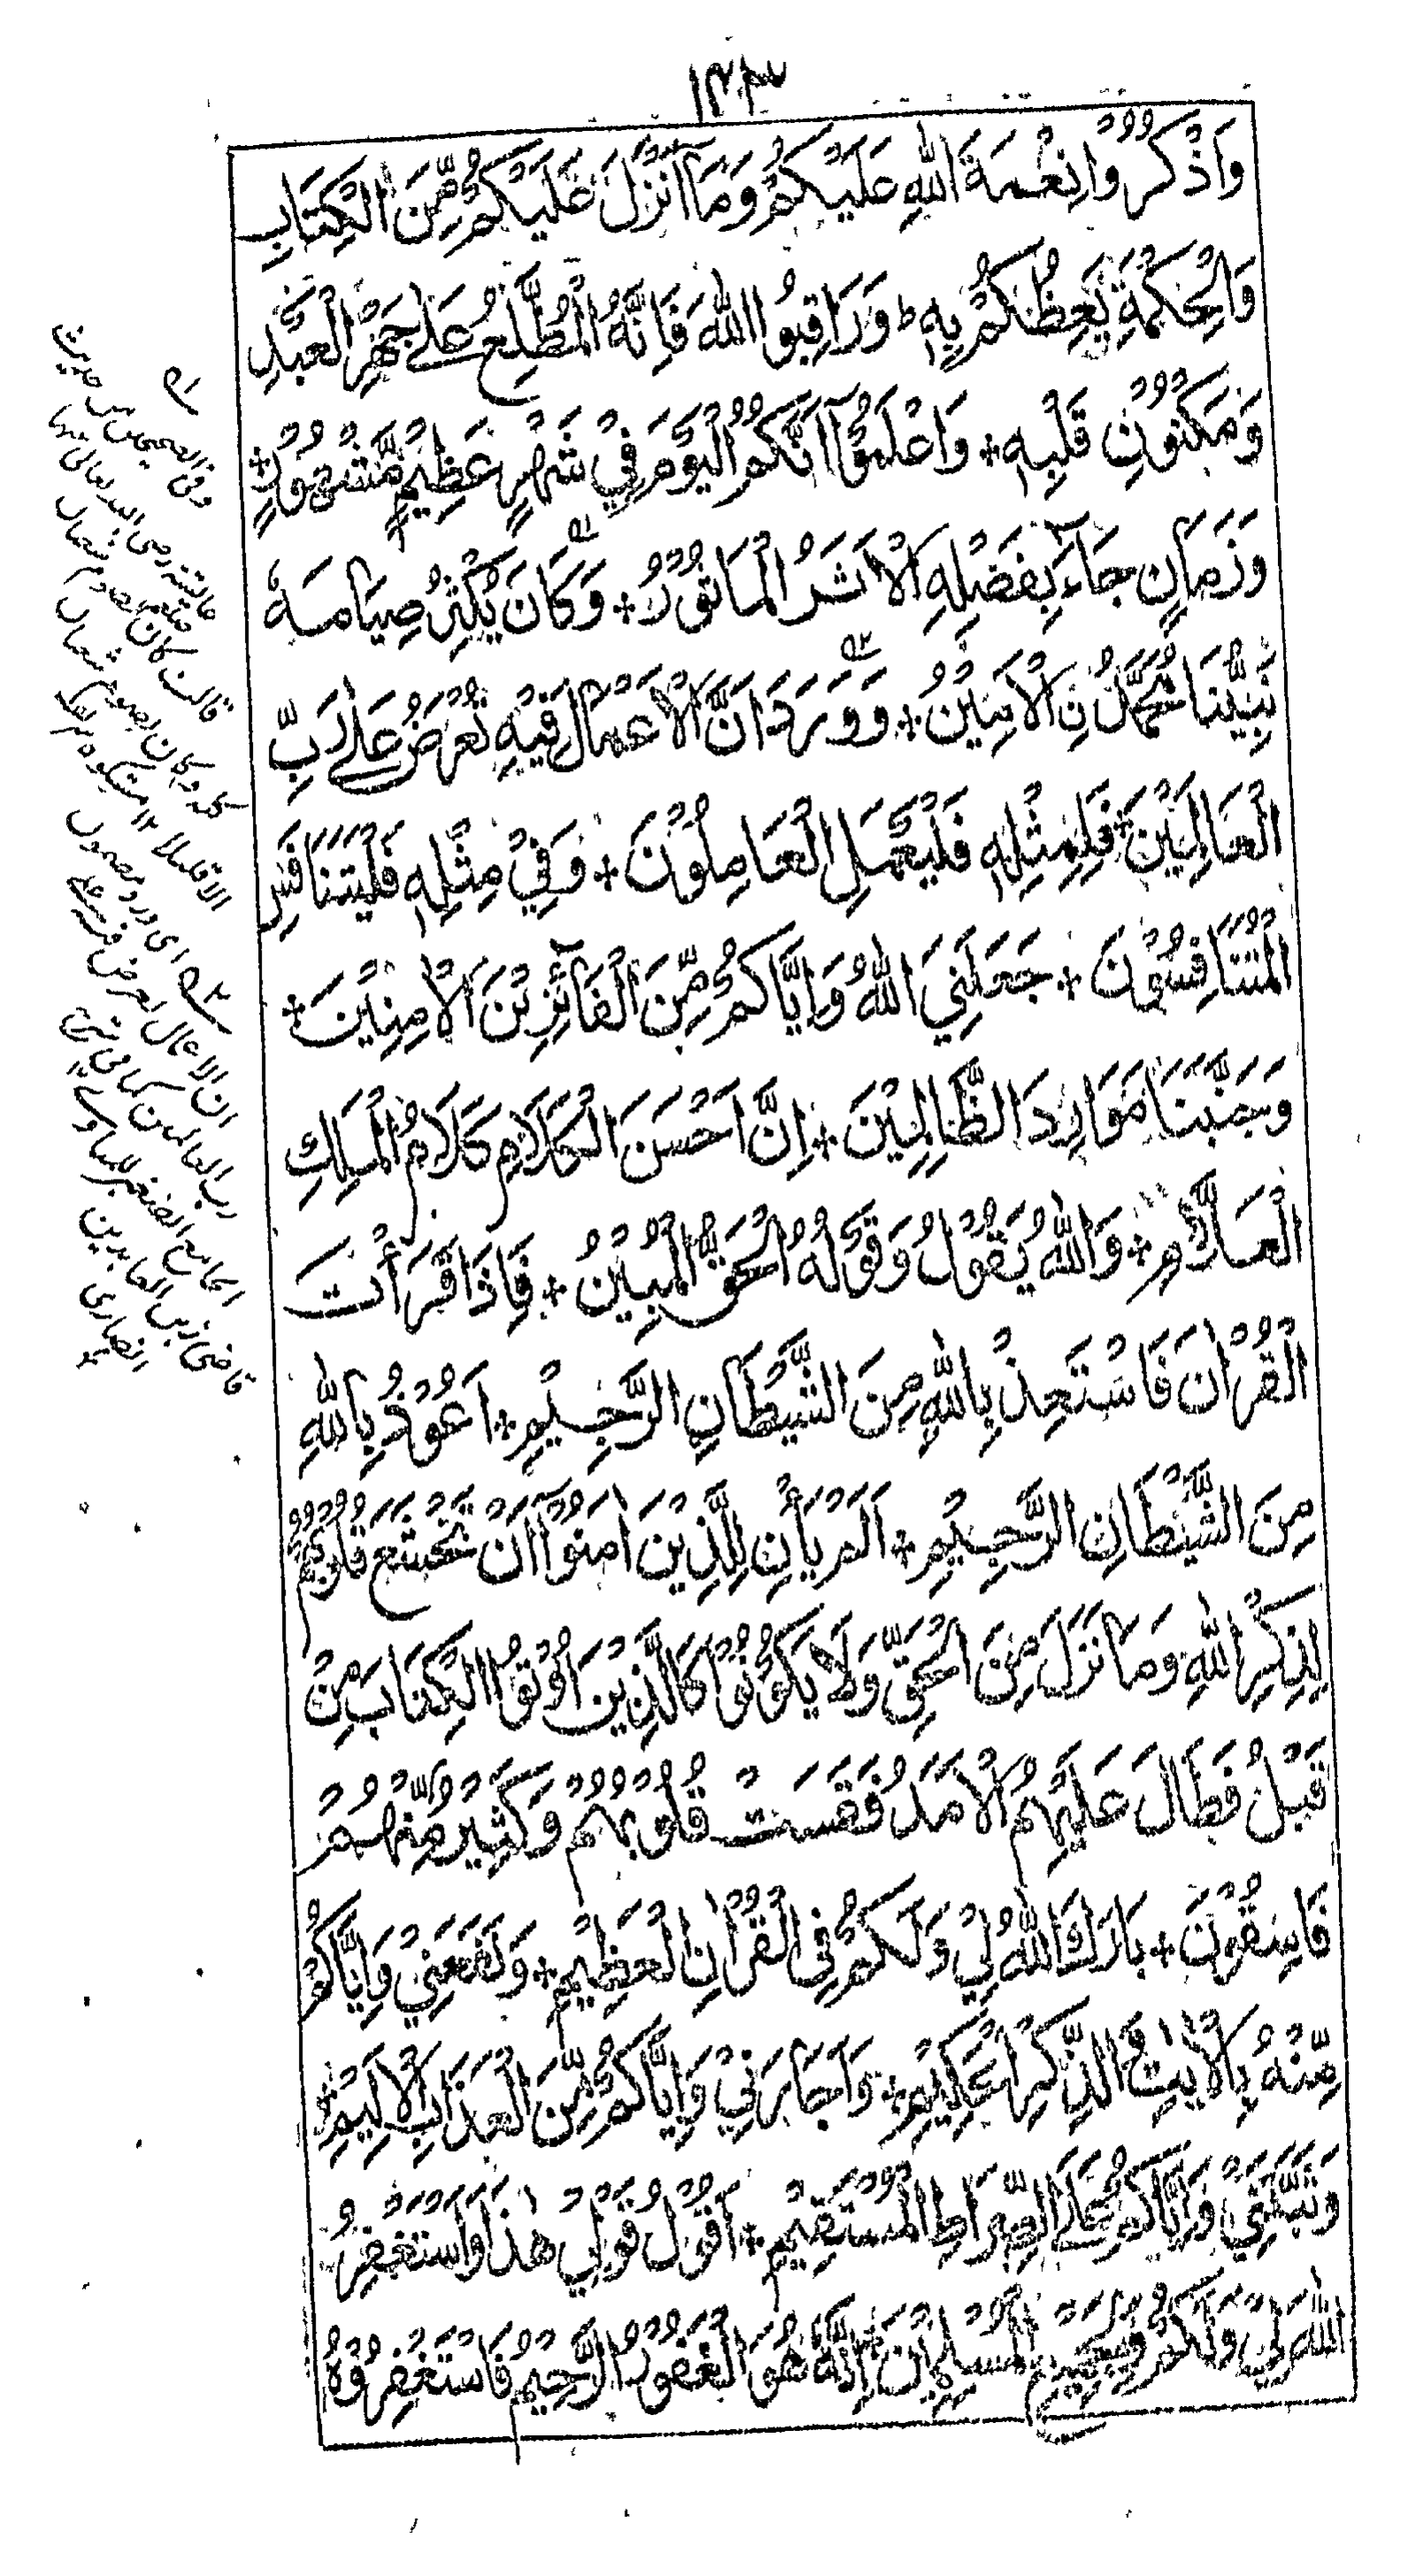 ١٤٣
وَاذْكُرُوْا نِعْمَةَ اللهِ عَلَيْكُمْ وَمَآ اَنْزَلَ عَلَيْكُمْ مِّنَ الْكِتَابِ
وَالْحِكْمَةِ يَعِظُكُمْ بِهٖ ط وَرَاقِبُوا اللهَ فَاِنَّهُ الْمُطَّلِعُ عَلٰى جَهْرِ الْعَبْدِ
وَمَكْنُوْنِ قَلْبِهٖ + وَاعْلَمُوْٓا اَنَّكُمُ الْيَوْمَ فِيْ شَهْرٍ عَظِيْمٍ مَّشْهُوْرٍ +
وَزَمَانٍ جَآءَ بِفَضْلِهِ الْاَثَرُ الْمَاثُوْرُ + وَكَانَ يُكْثِرُ صِيَامَهٗ
نَبِيُّنَا مُحَمَّدُ نِ الْاَمِيْنُ + وَوَرَدَ اَنَّ الْاَعْمَالَ فِيْهِ تُعْرَضُ عَلٰى رَبِّ
الْعَالَمِيْنَ + فَلِمِثْلِهٖ فَلْيَعْمَلِ الْعَامِلُوْنَ + وَفِيْ مِثْلِهٖ فَلْيَتَنَافَسِ
الْمُتَنَافِسُوْنَ + جَعَلَنِيَ اللهُ وَاِيَّاكُمْ مِّنَ الْفَآئِزِيْنَ الْاٰمِنِيْنَ +
وَجَنَّبَنَا مَوَارِدَ الظَّالِمِيْنَ + اِنَّ اَحْسَنَ الْكَلَامِ كَلَامُ الْمَلِكِ
الْعَلَّامِ + وَاللهُ يَقُوْلُ وَقَوْلُهُ الْحَقُّ الْمُبِيْنُ + فَاِذَا قَرَأْتَ
الْقُرْاٰنَ فَاسْتَعِذْ بِاللهِ مِنَ الشَّيْطَانِ الرَّجِيْمِ + اَعُوْذُ بِاللهِ
مِنَ الشَّيْطَانِ الرَّجِيْمِ + اَلَمْ يَأْنِ لِلَّذِيْنَ اٰمَنُوْٓا اَنْ تَخْشَعَ قُلُوْبُهُمْ
لِذِكْرِ اللهِ وَمَا نَزَلَ مِنَ الْحَقِّ وَلَا يَكُوْنُوْا كَالَّذِيْنَ اُوْتُوا الْكِتَابَ مِنْ
قَبْلُ فَطَالَ عَلَيْهِمُ الْاَمَدُ فَقَسَتْ قُلُوْبُهُمْ وَكَثِيْرٌ مِّنْهُمْ
فَاسِقُوْنَ + بَارَكَ اللهُ لِيْ وَلَكُمْ فِي الْقُرْاٰنِ الْعَظِيْمِ + وَنَفَعَنِيْ وَاِيَّاكُمْ
مِّنْهُ بِالْاٰيٰتِ وَالذِّكْرِ الْحَكِيْمِ + وَاَجَارَنِيْ وَاِيَّاكُمْ مِّنَ الْعَذَابِ الْاَلِيْمِ +
وَثَبَّتَنِيْ وَاِيَّاكُمْ عَلَى الصِّرَاطِ الْمُسْتَقِيْمِ + اَقُوْلُ قَوْلِيْ هٰذَا وَاَسْتَغْفِرُ
اللهَ لِيْ وَلَكُمْ وَلِجَمِيْعِ الْمُسْلِمِيْنَ + اِنَّهٗ هُوَ الْغَفُوْرُ الرَّحِيْمُ فَاسْتَغْفِرُوْهُ
وفی الصحیحین من حدیث
عائشة رضی الله تعالی عنها
قالت کان صلعم یصوم شعبان
کله وکان یصوم شعبان
الا قلیلا ۱۲ مشکوة
ای ورد مضمون
ان الاعمال تعرض فیه علی
رب العالمین کما فی شرح
الجامع الصغیر للمناوی
قاضی زین العابدین
انصاری